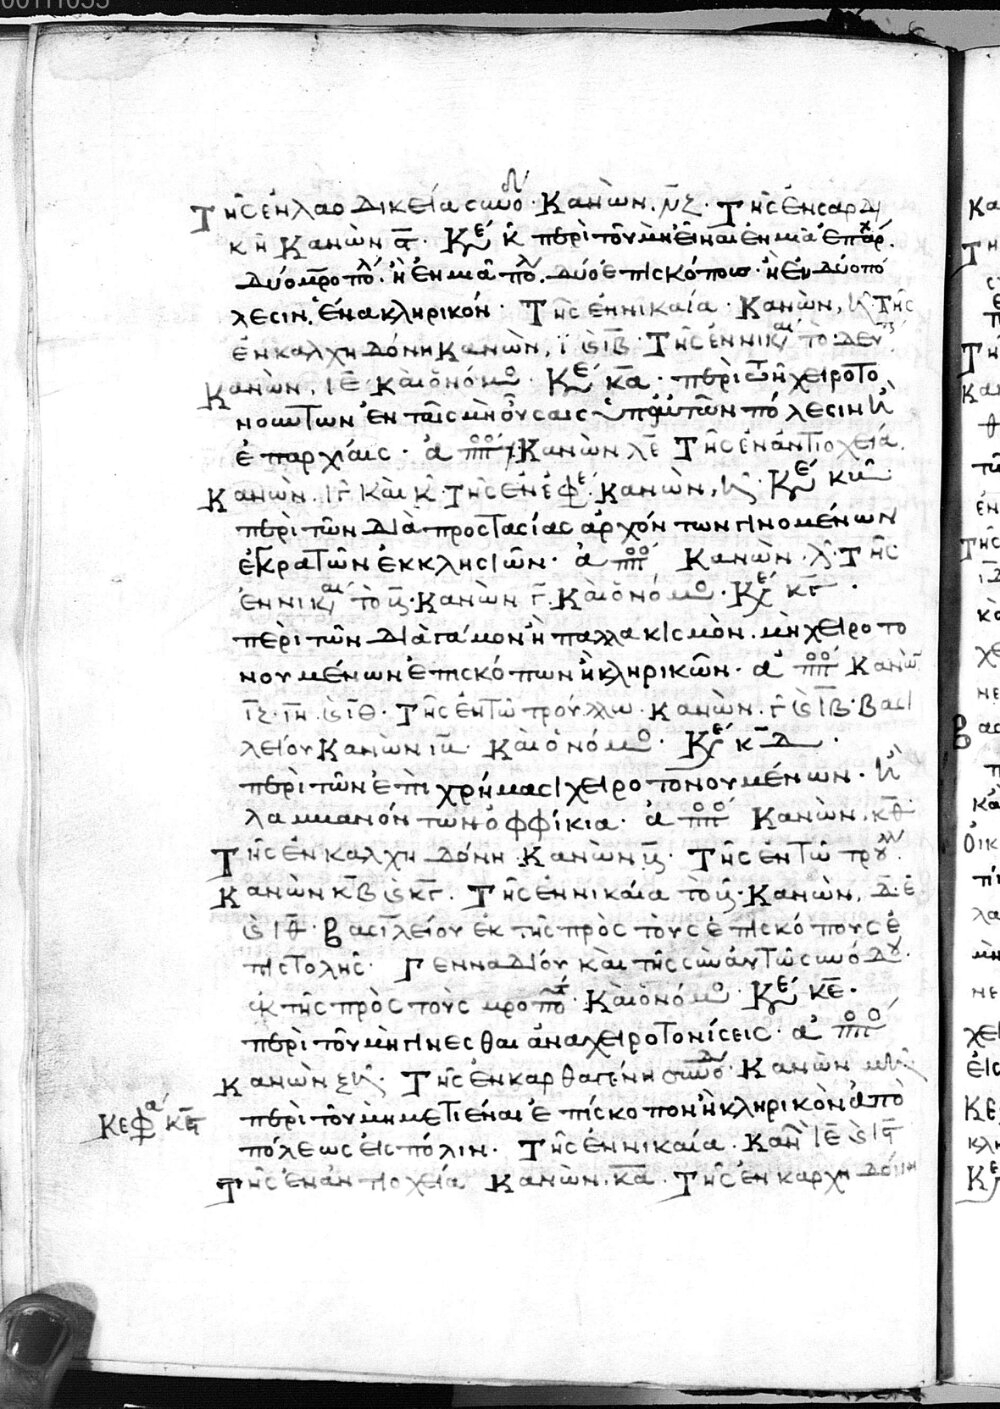 Τῆς ἐν λαοδικεία συνο. Κανὼν. νζ. Τῆς ἐν σαρδι
κῆ Κανὼν ϛ. Κε κ περὶ τοῦ μὴ εἶναι ἐν μιᾶ ἐπαρχ.
δύο μροπολ. ἢ ἐν μιᾶ πολ. δύο ἐπισκόπους. ἢ ἐν δύο πό
λεσιν. ἕνα κληρικόν. Τῆς ἐν νικαία. Κανὼν, η Τῆς
ἐν καλχηδόνη Κανὼν, ι ϗ ιβ. Τῆς ἐν νικαι το δευ
Κανὼν, ιε Και ὁ νόμο. Κε κα. περὶ τῶν χειροτο
νούντων ἐν ταῖς μὴ οὔσαις ὑπ αὐτῶν πόλεσιν ἢ
ἐπαρχίαις. ἁ ππ Κανὼν λε Τῆς ἐν ἀντιοχεία.
Κανὼν. ιγ Και κ. Τῆς ἐν ἐφε. Κανὼν, η. Κε κβ
περὶ τῶν διὰ προστασίας ἀρχόντων γινομένων
ἐγκρατῶν ἐκκλησιῶν. ἁ ππ Κανὼν λ. Τῆς
ἐν νικαι το β. Κανὼν γ. Και ὁ νόμο. Κε κγ.
περὶ τῶν διὰ γάμον ἢ παλλακισμὸν. μὴ χειροτο
νουμένων ἐπισκόπων ἢ κληρικῶν. ἁ ππ Κανὼ
ιζ. ιη. ϗ ιθ. Τῆς ἐν τῶ τρούλλω Κανὼν. γ ϗ ιβ. βασι
λείου Κανὼν ιβ Και ὁ νόμο. Κε κδ.
περὶ τῶν ἐπὶ χρήμασι χειροτονουμένων. ἢ
λαμμανόντων ὀφφίκια. ἁ ππ Κανὼν. κθ
Τῆς ἐν καλχηδόνη Κανὼν β. Τῆς ἐν τῶ τρου.
Κανὼν κβ ϗ κγ. Τῆς ἐν νικαία το β. Κανὼν, δ. ε
ϗ ιθ. βασιλείου ἐκ τῆς πρὸς τοὺς ἐπισκόπους ἐ
πιστολῆς. Γενναδίου και τῆς σὺν αὐτῶ συνόδου.
ἐκ τῆς πρὸς τοὺς μροπο. Και ὁ νόμο. Κε κε.
περὶ τοῦ μὴ γίνεσθαι ἀναχειροτονίσεις. ἁ ππ
Κανὼν ξη. Τῆς ἐν καρθαγένη συνο. Κανὼν μη
Κεφα κϛ περὶ τοῦ μὴ μετιέναι ἐπίσκοπον ἢ κληρικὸν ἀπὸ
πόλεως εἰς πόλιν. Τῆς ἐν νικαία. Καν ιε ϗ ιϛ
Τῆς ἐν ἀντιοχεία Κανὼν. κα. Τῆς ἐν καρχηδόνη